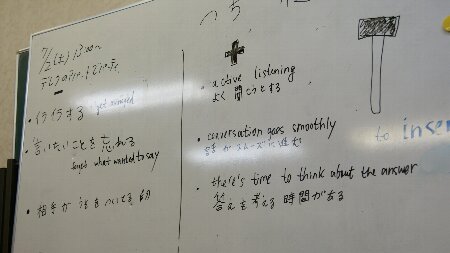 つち
7/2(土) 13:00~
• イライラする get annoyed
• 言いたいことを忘れる
forget what wanted to say
• 相手が
+
• active listening
よく聞こうとする
• conversation goes smoothly
話がスムーズに進む
• there's time to think about the answer
答えを考える時間がある
to inser